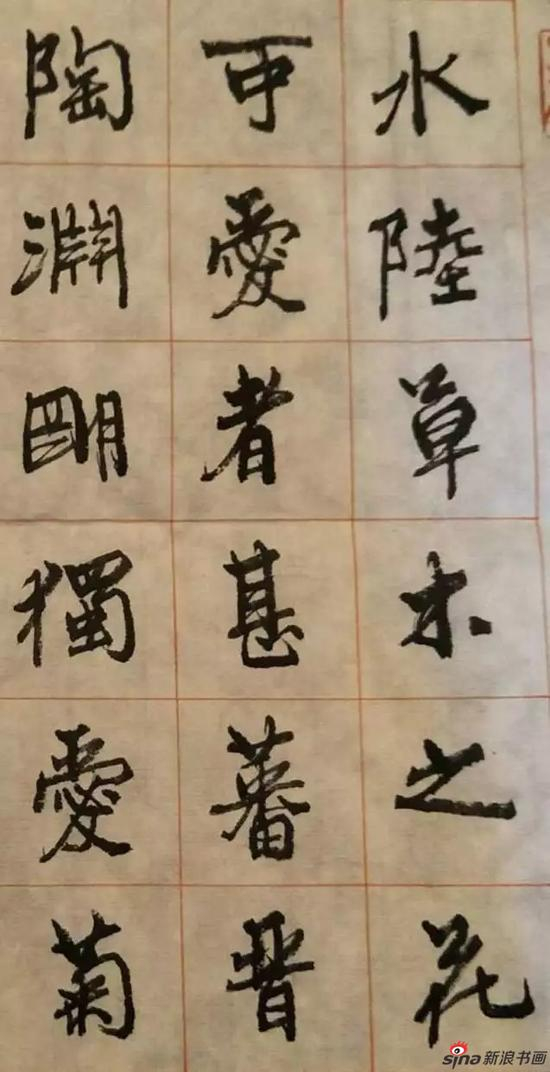 水陸草木之花
可愛者甚蕃晋
陶淵明獨愛菊
sina新浪书画